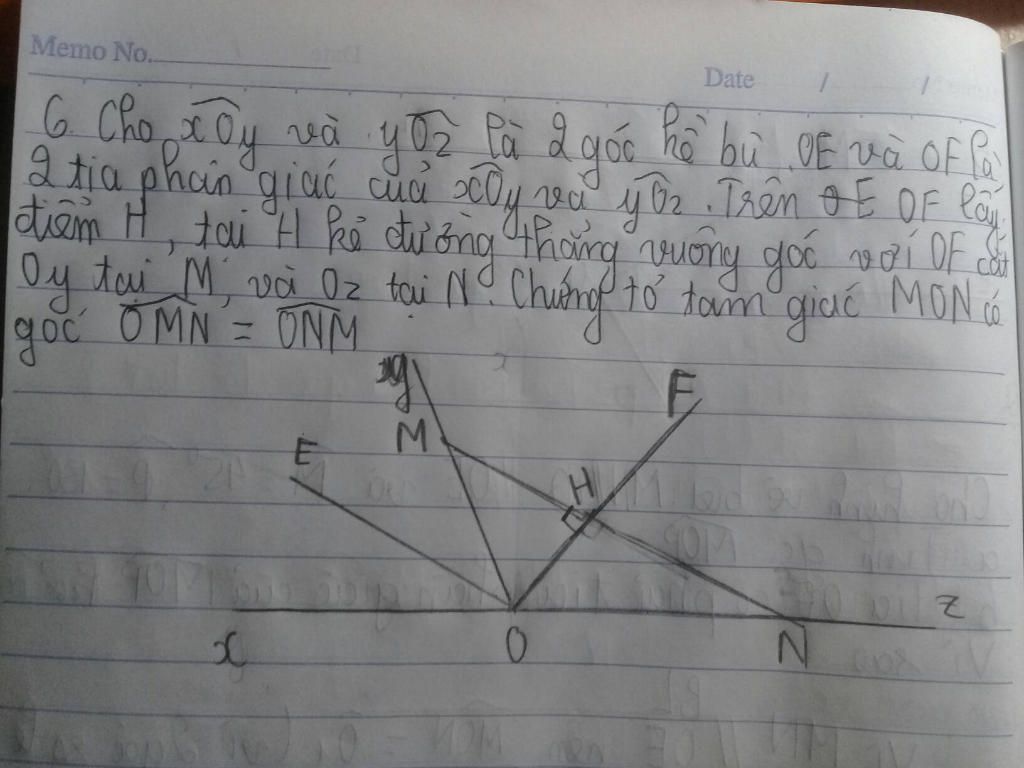 Memo No.
Date / /
6. Cho xOy và yOz là 2 góc kề bù. OE và OF là
2 tia phân giác của xOy và yOz. Trên OF lấy
điểm H, tại H kẻ đường thẳng vuông góc với OF cắt
Oy tại M, và Oz tại N. Chứng tỏ tam giác MON có
góc OMN = ONM
y
F
M
E
H
x
O
N
z